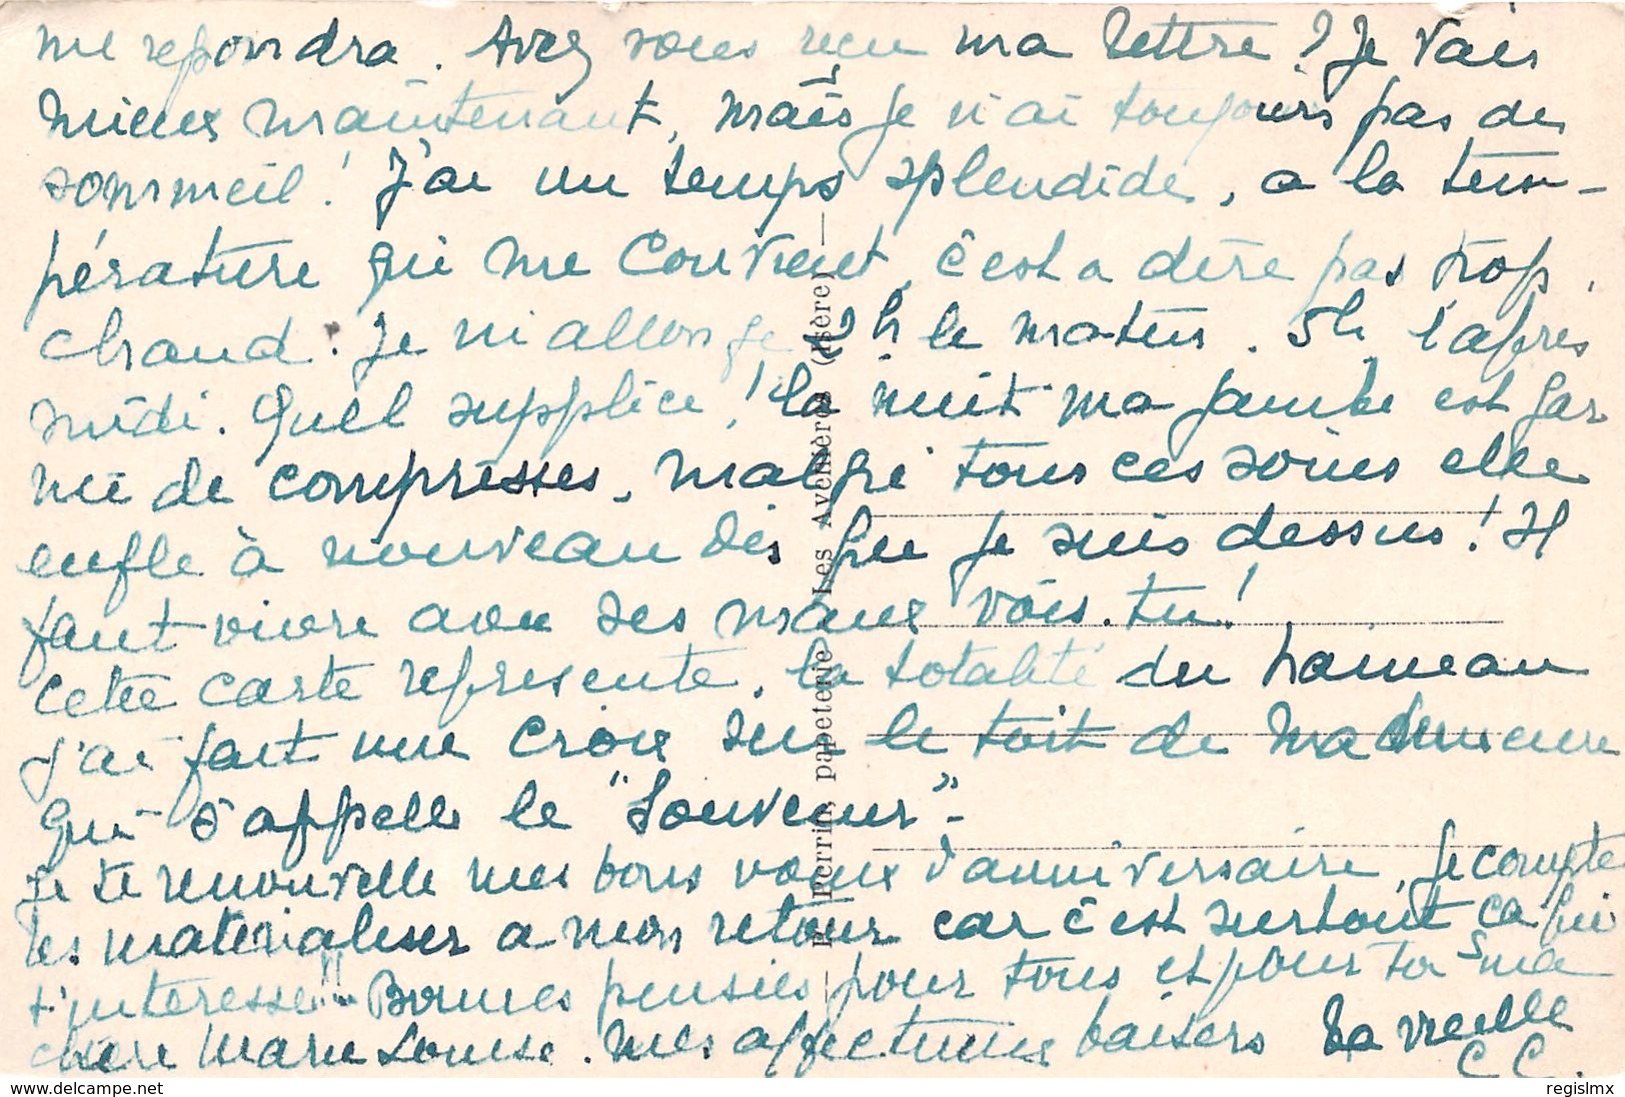 me repondra. Avez vous reçu ma lettre ? Je vais
mieux maintenant, mais je n'ai toujours pas de
sommeil ! J'ai un temps splendide, a la tem-
pérature qui me convient, c'est a dire pas trop
chaud. Je m'allonge 2h le matin. 5h l'apres
midi. Quel supplice ! la nuit ma jambe est gar
nie de compresses, malgré tous ces soins elle
enfle à nouveau dès que je suis dessus ! Il
faut vivre avec ses maux vois-tu !
Cette carte represente, la totalité du hameau
J'ai fait une croix sur le toit de ma demeure
qui s'appelle le "Souvenir" -
Je te renouvelle mes bons voeux d'anniversaire, Je compte
les materialiser a mon retour car c'est surtout ça qui
t'interesse !!! Bonnes pensées pour tous et pour toi ma
chère Marie Louise. Mes affectueux baisers Ta vieille
C C.
R. Perrin, papeterie, Les Avenières (Isère)
delcampe.net
regislmx